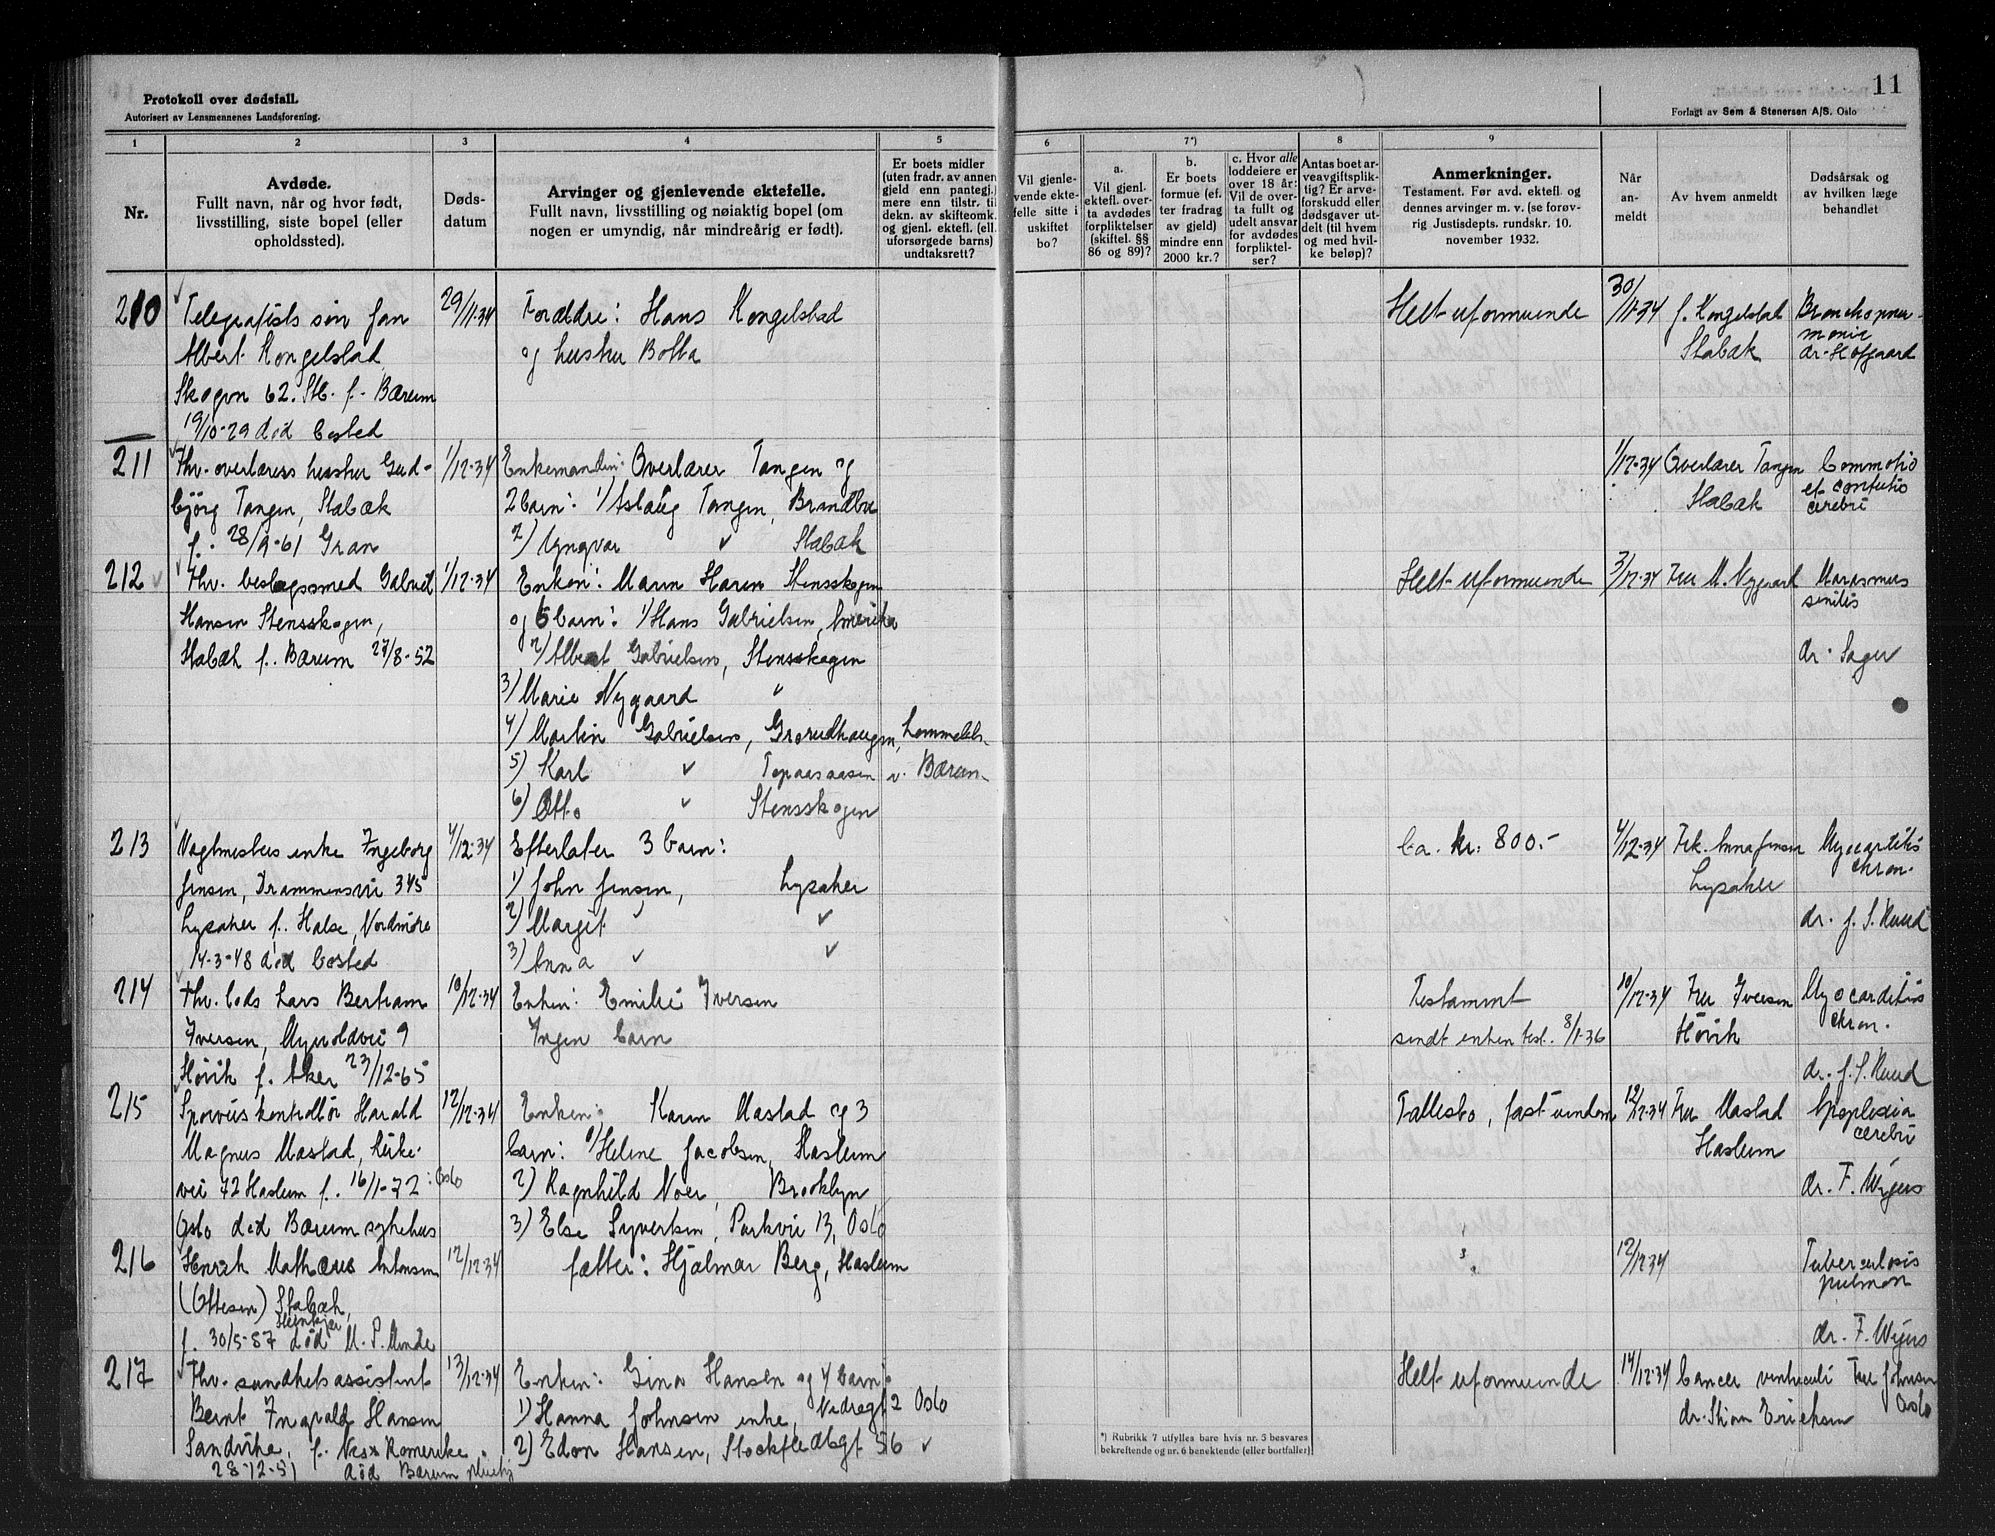 Protokoll over dødsfall.
Autorisert av Lensmennenes Landsforening.
11
Forlagt av Sem & Stenersen A/S. Oslo
1
2
3
4
5
6
7*)
8
9
Nr.
Avdøde.
Fullt navn, når og hvor født,
livsstilling, siste bopel (eller
opholdssted).
Døds-
datum
Arvinger og gjenlevende ektefelle.
Fullt navn, livsstilling og nøiaktig bopel (om
nogen er umyndig, når mindreårig er født).
Er boets midler
(uten fradr. av annen
gjeld enn pantegj.)
mere enn tilstr. til
dekn. av skifteomk.
og gjenl. ektefl. (ell.
uforsørgede barns)
undtaksrett?
Vil gjenle-
vende ekte-
felle sitte i
uskiftet
bo?
a.
Vil gjenl.
ektefl. over-
ta avdødes
forpliktelser
(skiftel. §§
86 og 89)?
b.
Er boets
formue (ef-
ter fradrag
av gjeld)
mindre enn
2000 kr.?
c. Hvor alle
loddeiere er
over 18 år:
Vil de over-
ta fullt og
udelt ansvar
for avdødes
forpliktel-
ser?
Antas boet ar-
veavgiftsplik-
tig? Er arve-
forskudd eller
dødsgaver ut-
delt (til hvem
og med hvil-
ke beløp)?
Anmerkninger.
Testament. Før avd. ektefl. og
dennes arvinger m. v. (se forøv-
rig Justisdepts. rundskr. 10.
november 1932.
Når
an-
meldt
Av hvem anmeldt
Dødsårsak og
av hvilken læge
behandlet
210
Telegrafists søn Jan
Albert Kongelstad
Skogvn 62. Stb. f. Bærum
19/10-29 død bosted
29/11-34
Forældre: Hans Kongelstad
og hustru Botta
Helt uformuende
30/11-34
f. Kongelstad
Stabæk
Bronchopneu-
monia
dr. Hofgaard
211
Fhv. overlærers hustru Gud-
björg Tangen, Stabæk
f. 28/9-61 Gran
1/12-34
Enkemanden: Overlærer Tangen og
2 barn: 1/ Aslaug Tangen, Brandbu
2) Yngvar " Stabæk
1/12-34
Overlærer Tangen
Stabæk
Commotio
et contutio
cerebri
212
Fhv. beslagsmed Gabriel
Hansen Stensskogen,
Stabæk f. Bærum 27/8-52
1/12-34
Enken: Maren Karen Stensskogen
og 6 barn: 1/ Hans Gabrielsen, Amerika
2) Albert Gabrielsen, Stensskogen
3) Marie Nygaard "
4) Martin Gabrielsen, Grorudhaugen, Lommedals-
5) Karl " Topaasaasen v. Bærum
6) Otto " Stensskogen
Helt uformuende
3/12-34
Fru M. Nygaard
Marasmus
senilis
dr. Sager
213
Vagtmesters enke Ingeborg
Jensen, Drammensvei 345
Lysaker f. Halse, Nordmöre
14-3-48 død bosted
4/12-34
Efterlater 3 barn:
1) John Jensen, Lysaker
2) Margit " "
3) Anna " "
ca. kr. 800.-
4/12-34
Frk. Anna Jensen
Lysaker
Myocarditis
chron.
dr. J. S. Ruud
214
Fhv. lods Lars Bertram
Iversen, Rynoldvei 9
Høvik f. Aker 23/12-65
10/12-34
Enken: Emilie Iversen
Ingen barn
Testament
sendt enken test. 8/1-36
10/12-34
Fru Iversen
Høvik
Myocarditis
chron.
dr. J. S. Ruud
215
Sporveiskontrollør Harald
Magnus Mastad, Kirke-
vei 72 Haslum f. 16/1-72 : Oslo
Oslo død Bærum sykehus
12/12-34
Enken: Karen Mastad og 3
barn: 1/ Helene Jacobsen, Haslum
2) Ragnhild Noer, Brooklyn
3) Else Syvertsen, Parkvei 13, Oslo
Fællesbo, fast eiendom
12/12-34
Fru Mastad
Haslum
Apoplexia
cerebri
dr. F. Wejus
216
Henrik Mathæus Antonsen
(Ottesen) Stabæk,
Steinkjer
f. 30/5-87 død M. P. Minde
12/12-34
fætter: Hjalmar Berg, Haslum
12/12-34
Tuberculosis
pulmon
dr. F. Wejus
217
Fhv. sundhetsassistent
Bernt Ingvald Hansen
Sandvika, f. Nes Romerike
28-12-51 død Bærum pleiehj
13/12-34
Enken: Gina Hansen og 4 barn:
1) Hanna Johnsen enke, Nedregt 2 Oslo
2) Edon Hansen, Stockfledtsgt 56 "
Helt uformuende
14/12-34
Cancer ventriculi
dr. Stian Erichsen
Fru Johnsen
Oslo
*) Rubrikk 7 utfylles bare hvis nr. 5 besvares
bekreftende og nr. 6 benektende (eller bortfaller)